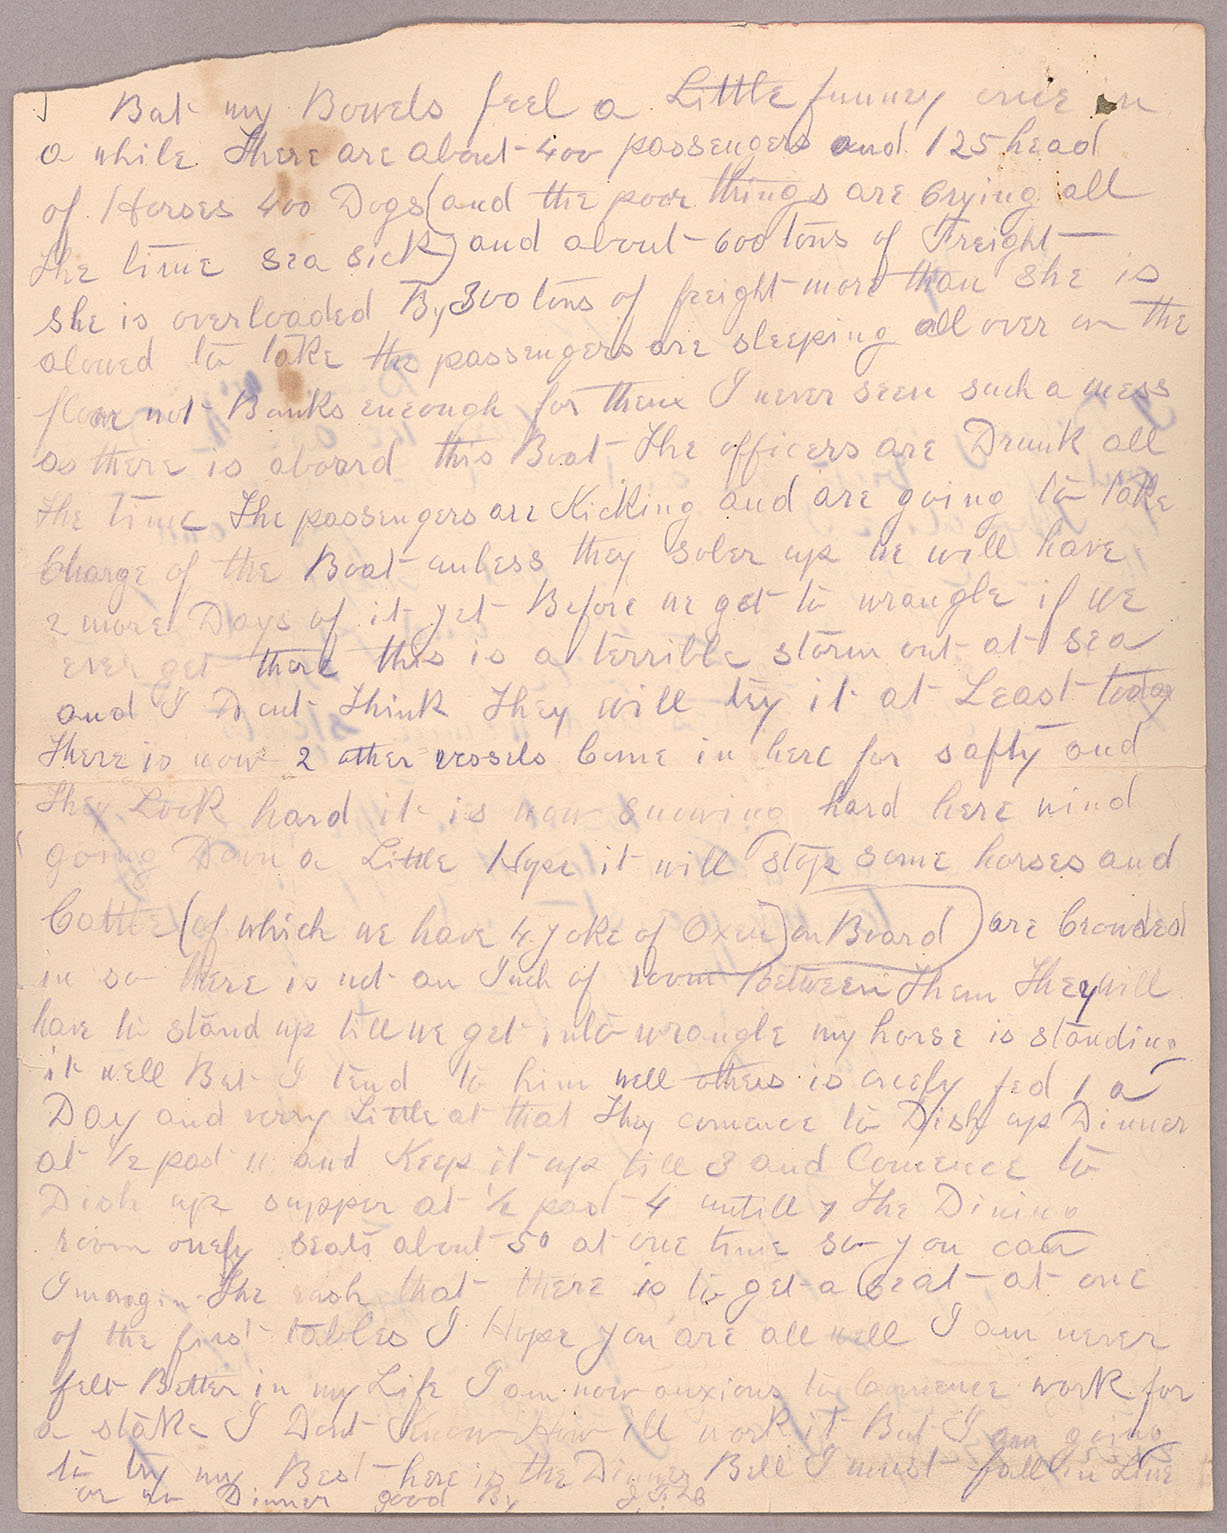 But my Bowels feel a Little funney once in
a while There are about 400 passengers and 125 head
of Horses 400 Dogs (and the poor things are Crying all
the time sea sick) and about 600 tons of Freight
she is overloaded By 300 tons of freight more than she is
alowed to take the passengers are sleeping all over on the
floor not Bunks eneough for them I never seen such a mess
as there is aboard this Boat The officers are Drunk all
the time The passengers are Kicking and are going to take
Charge of the Boat unless they sober up we will have
2 more Days of it yet Before we get to wrangle if we
ever get there this is a terrible storm out at sea
and I Dont Think They will try it at Least today
There is now 2 other vessels Come in here for safty and
They Look hard it is now snowing hard here wind
going Down a Little Hope it will stop some horses and
Cattle (of which we have 4 yoke of Oxen) on Board) are Crowded
in so there is not an Inch of room between Them They will
have to stand up till we get into wrangle my horse is standing
it well But I tend to him well others is onely fed 1 a
Day and verry Little at that They comence to Dish up Dinner
at 1/2 past 11 and Keep it up till 3 and Comence to
Dish up supper at 1/2 past 4 untill 7 The Dining
room onely seats about 50 at one time so you can
Imargin The rush that there is to get a seat at one
of the first tables I Hope you are all well I am never
felt Better in my Life I am now anxious to Comence work for
a stake I Dont Know How ill work it But I am going
to try my Best here is the Dinner Bell I must fall in Line
or no Dinner good By